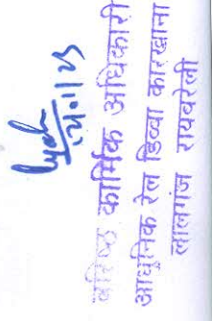 वरिष्ठ कार्मिक अधिकारी
आधुनिक रेल डिब्बा कारखाना
लालगंज रायबरेली